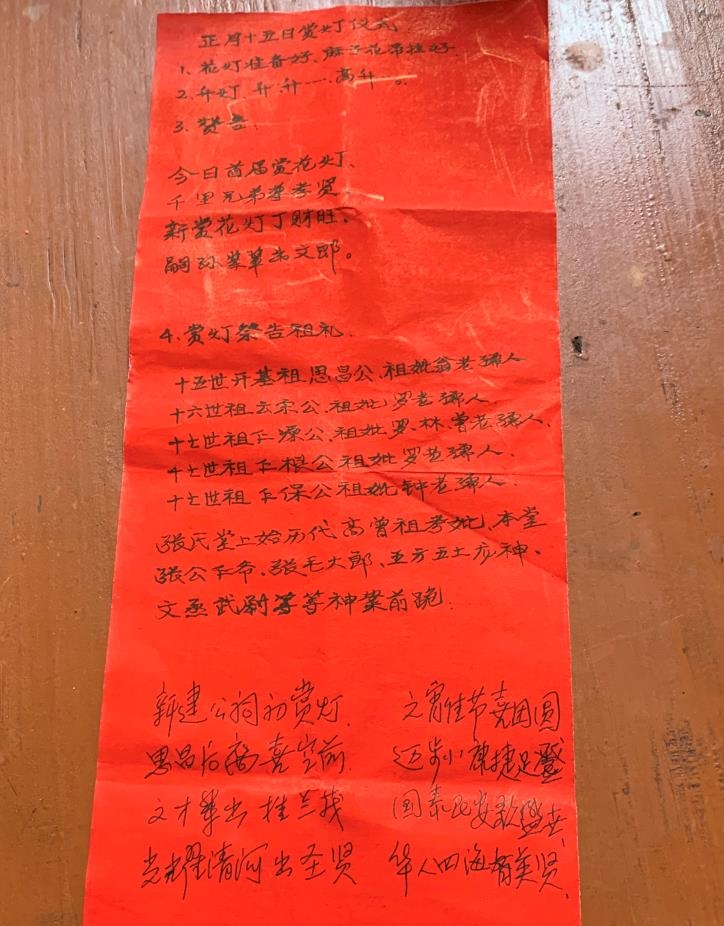 正月十五日赏灯仪式
1、花灯准备好、麻子花带挂好.
2、升灯、升、升……高升。
3、赞告:
今日首届赏花灯、
千里兄弟尊孝贤
新赏花灯丁财旺、
嗣孙 文郎。
4、赏灯祭告祖礼.
十五世开基祖思昌公、祖妣翁老孺人
十六世祖云宗公、祖妣罗老孺人、
十七世祖仁 公、祖妣罗、林、曾老孺人、
十七世祖仁根公祖妣罗老孺人、
十七世祖仁保公祖妣钟老孺人.
张氏堂上始历代高曾祖考妣、本堂
张公 爷、张毛大郎、五方五土龙神、
文丞武尉等等神案前跪:
新建公祠初赏灯.
思昌后裔喜空前
文才辈出桂兰茂
光耀清河出圣贤
元宵佳节竞团圆
迈步小康捷足登
国泰民安歌盛世
华人四海有英贤.